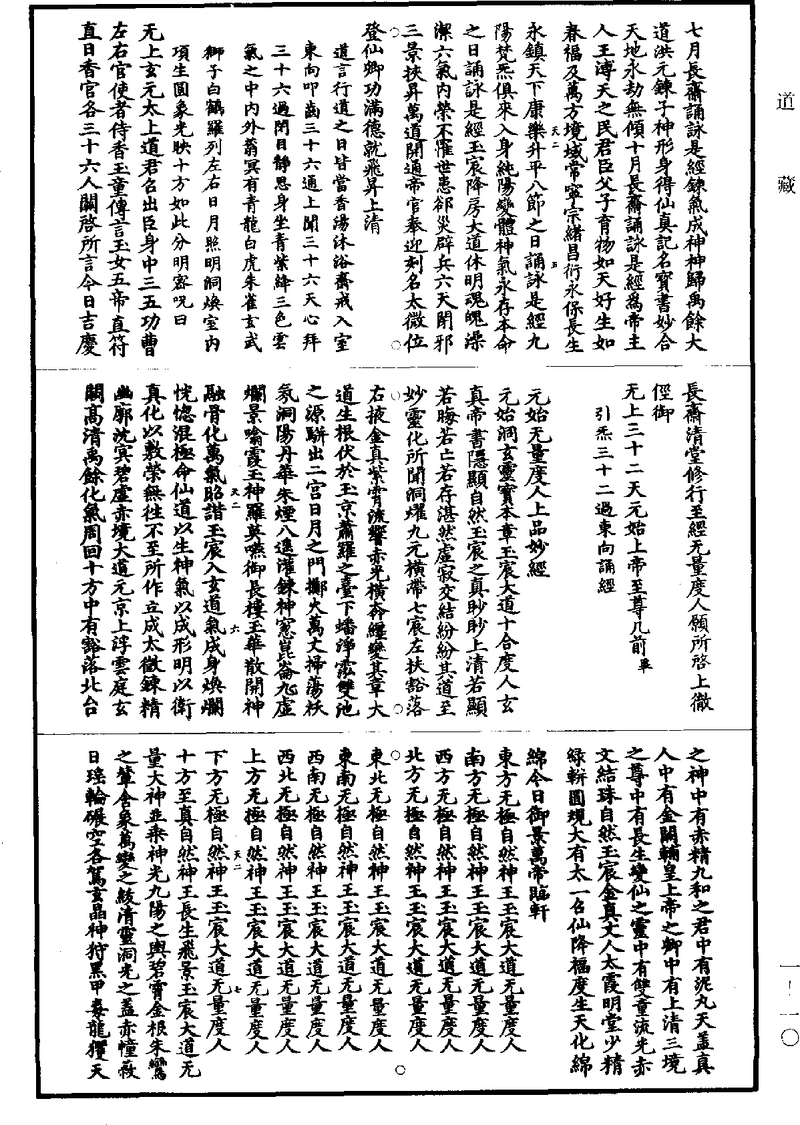 道藏
七月長齋誦詠是經鍊氣成神神歸禹餘大
道洪元鍊子神形身得仙真記名寶書妙合
天地永劫無傾十月長齋誦詠是經爲帝主
人王溥天之民君臣父子育物如天好生如
春福及萬方境域常寧宗緒昌衍永保長生
天二 五
永鎮天下康樂升平八節之日誦詠是經九
陽梵炁俱來入身純陽變體神氣永存本命
之日誦詠是經玉宸降房大道休明魂魄澡
潔六氣内榮不罹世患郤災辟兵六天閉邪
三景挾昇萬道開通帝官奉迎刻名太微位
登仙卿功滿德就飛昇上清
道言行道之日皆當香湯沐浴齋戒入室
東向叩齒三十六通上聞三十六天心拜
三十六過閉目靜思身坐青紫絳三色雲
氣之中内外蓊冥有青龍白虎朱雀玄武
獅子白鶴羅列左右日月照明洞煥室内
項生圓象光映十方如此分明密呪曰
无上玄元太上道君名出臣身中三五功曹
左右官使者侍香玉童傳言玉女五帝直符
直日香官各三十六人關啓所言今日吉慶
長齋清堂修行至經无量度人願所啓上徹
徑御
无上三十二天元始上帝至尊几前畢
引炁三十二過東向誦經
元始无量度人上品妙經
元始洞玄靈寶本章玉宸大道十合度人玄
真帝書隱顯自然玉宸之真眇眇上清若顯
若晦若亡若存湛然虛寂交結紛紛其道至
妙靈化所聞洞燿九元橫帶七宸左扶豁落
右掖金真紫霄流響赤光橫奔纏變其章大
道生根伏於玉京蕭羅之臺下蟠淨泓雙池
之源駢出二宮日月之門擲火萬丈掃蕩祅
氛洞陽丹華朱煙八進灌鍊神窻崑崙九虛
爛景喻霞玉神羅英嚥御長種玉華散開神
天二 六
融骨化萬氣昭諧玉宸入玄道氣成身煥爛
恍惚混極命仙道以生神氣以成形明以衛
真化以敷榮無往不至所作立成太微鍊精
幽廓沈冥碧虛赤境大道元京上浮雲庭玄
關高清禹餘化氣周回十方中有豁落北台
之神中有赤精九和之君中有泥丸天蓋真
人中有金闕輔皇上帝之卿中有上清三境
之尊中有長生變仙之靈中有雙童流光赤
文結珠自然玉宸金真丈人太霞明堂少精
綠輧圓規大有太一召仙降福度生天化綿
綿今日御景萬帝臨軒
東方无極自然神王玉宸大道无量度人
南方无極自然神王玉宸大道无量度人
西方无極自然神王玉宸大道无量度人
北方无極自然神王玉宸大道无量度人
東北无極自然神王玉宸大道无量度人
東南无極自然神王玉宸大道无量度人
西南无極自然神王玉宸大道无量度人
西北无極自然神王玉宸大道无量度人
上方无極自然神王玉宸大道无量度人
天二 七
下方无極自然神王玉宸大道无量度人
十方至真自然神王長生飛景玉宸大道无
量大神並乘神光九陽之輿碧霄金根朱鸞
之輦金象萬變之綾清靈洞光之蓋赤幢蔽
日瑤輪碾空各駕玄晶神狩黑甲毒龍玃天
一－一〇